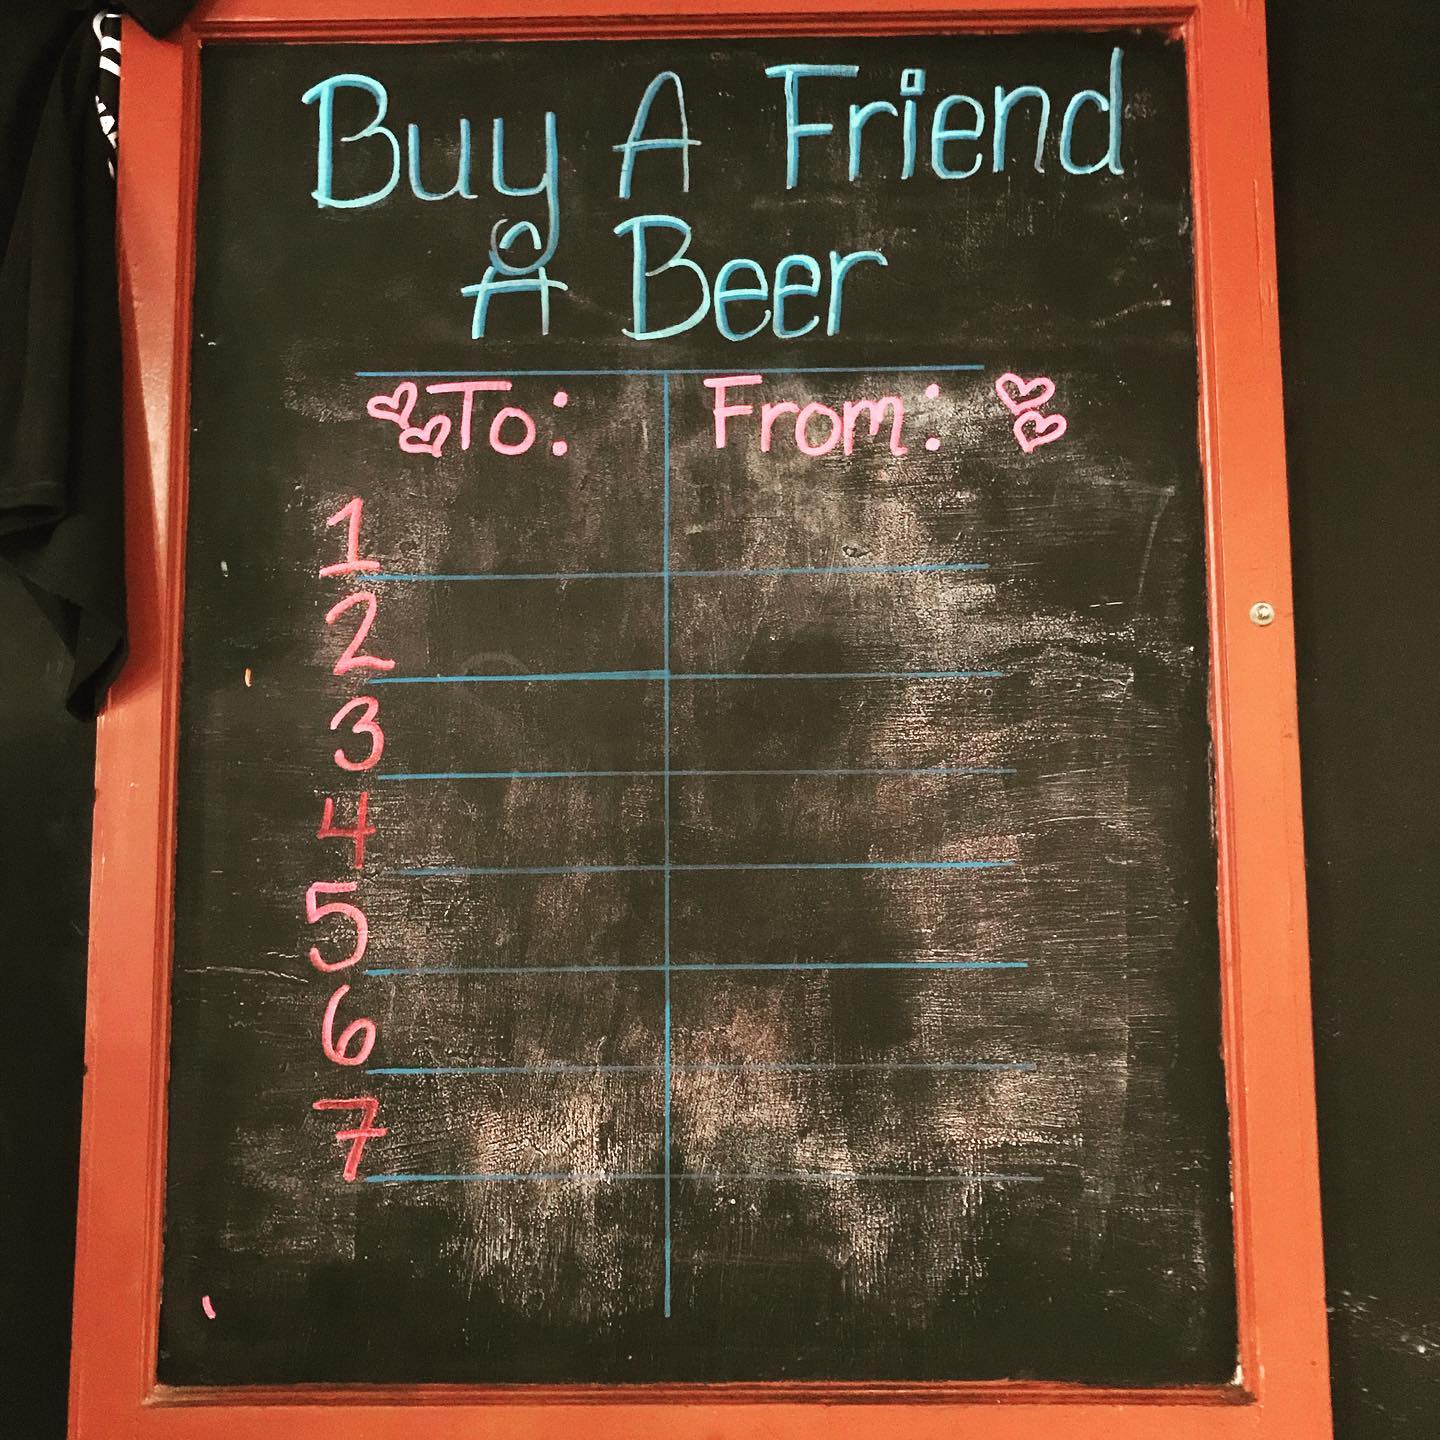 Buy A Friend
A Beer
To: From:
1
2
3
4
5
6
7